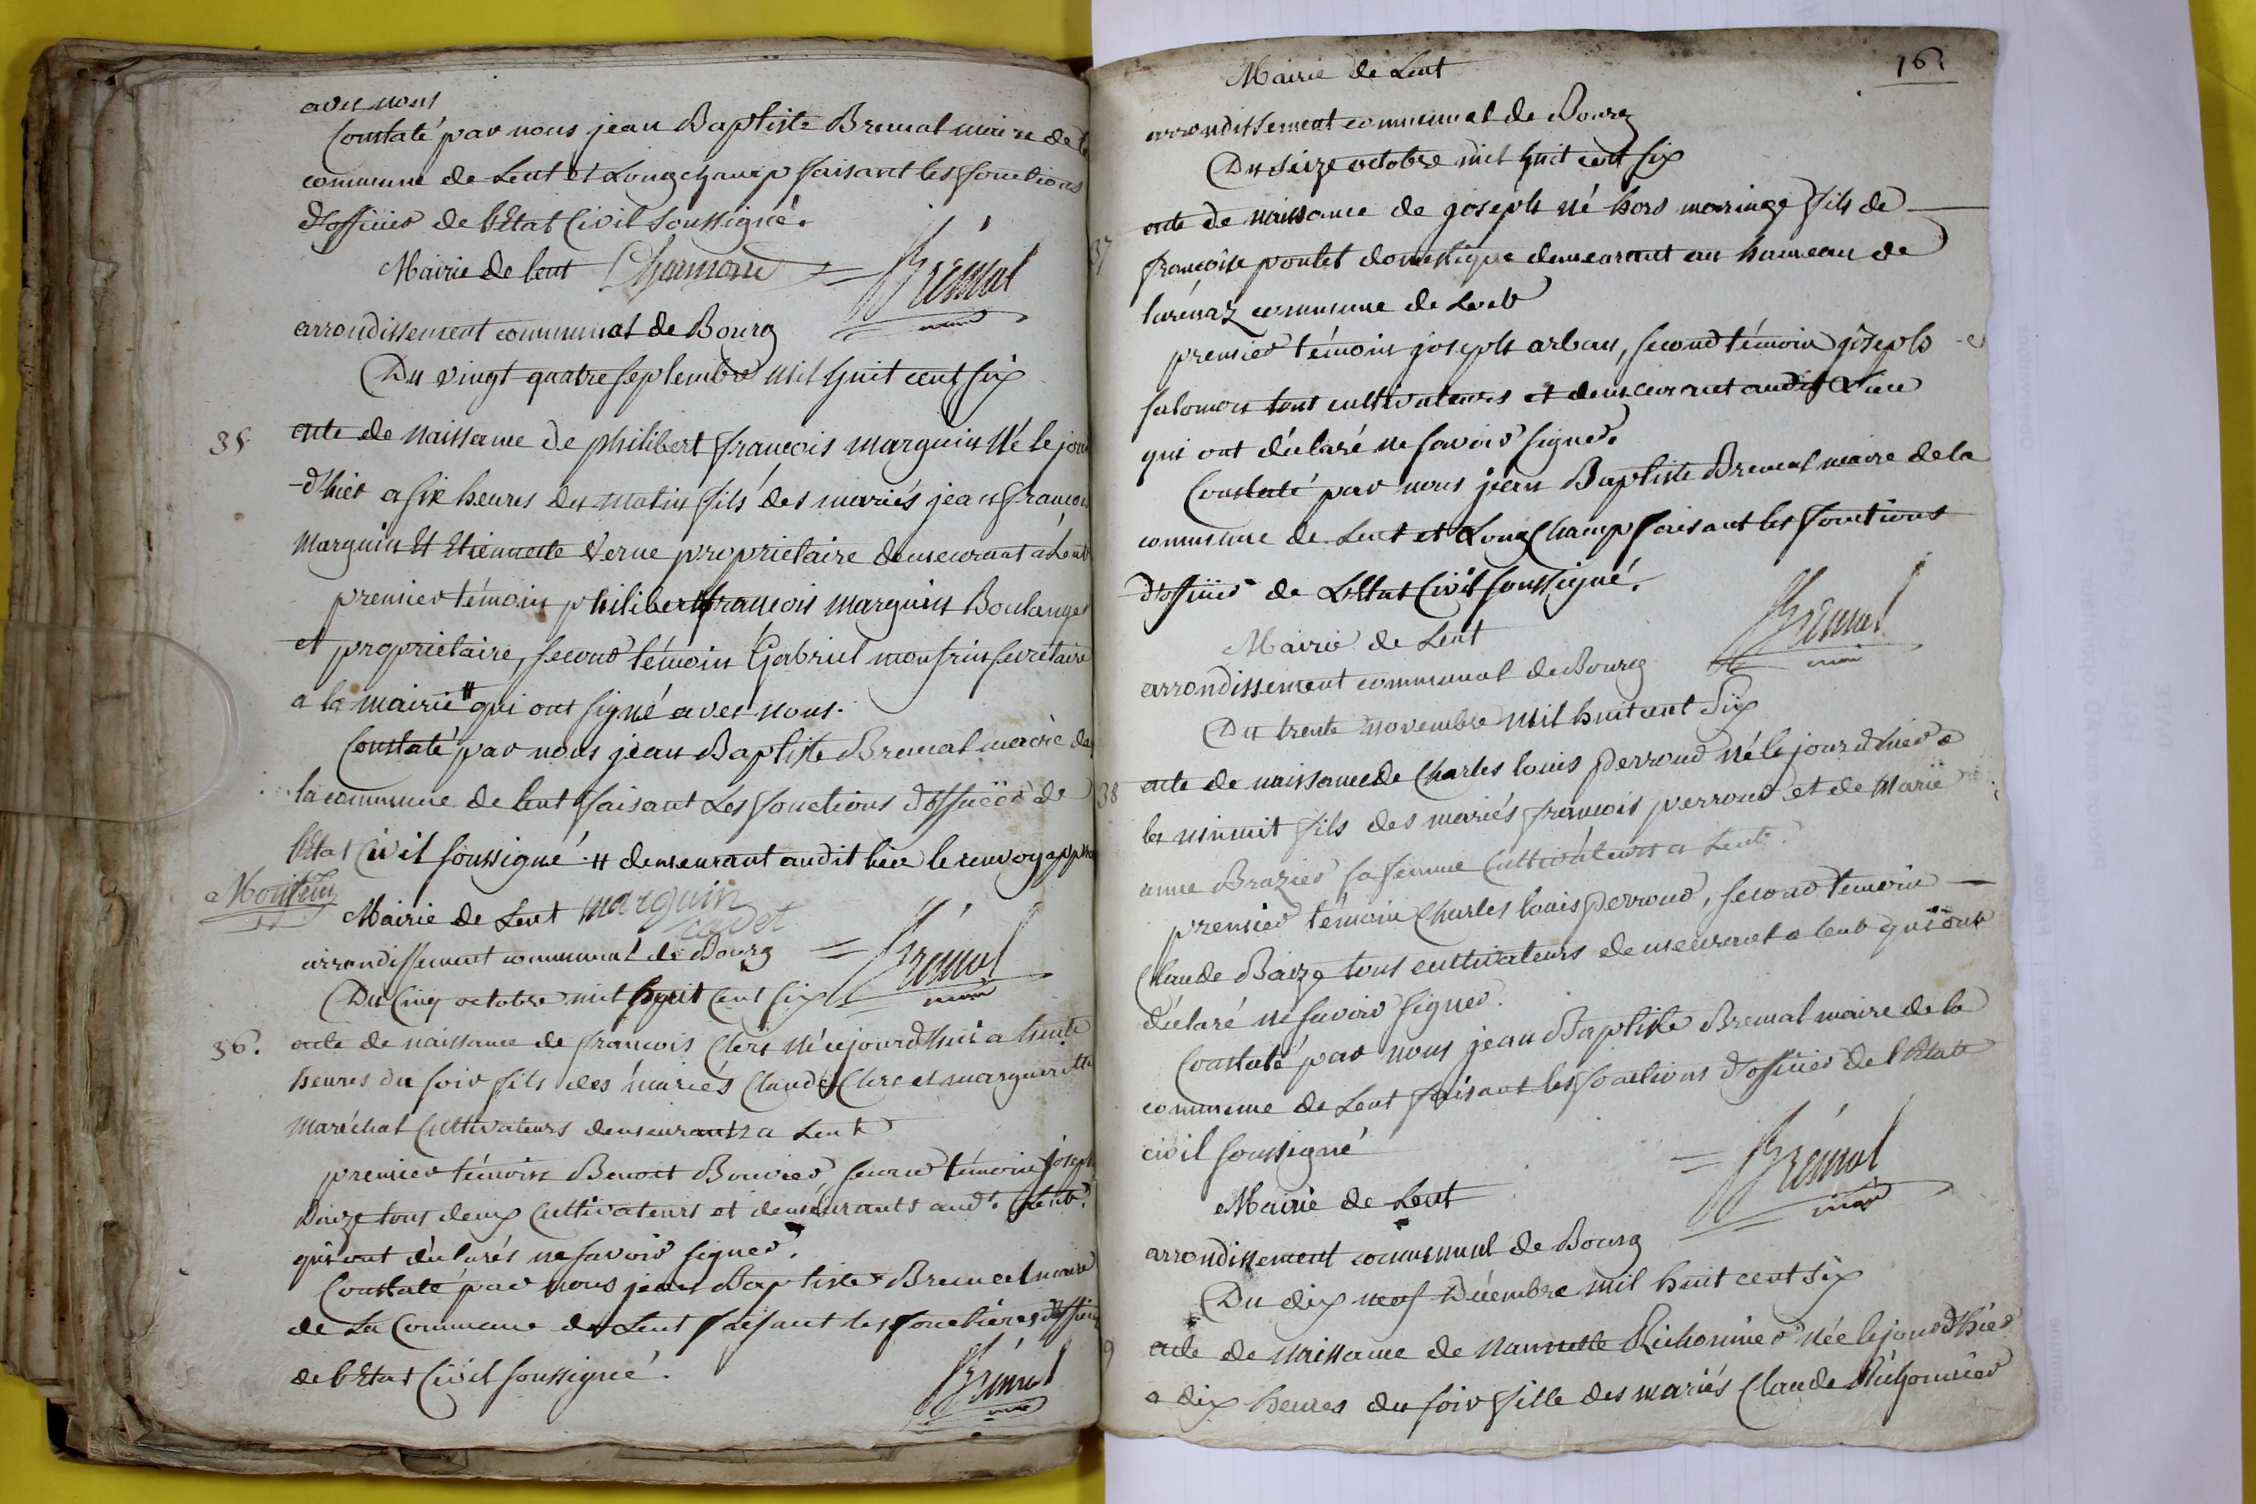 avec nous
Constaté par nous jean Baptiste Bremal maire de la
commune de Lent et Longchamp faisant les fonctions
d'officier de l'Etat Civil soussigné.
Mairie de lent Chamonne = Brémal
maire
arrondissement communal de Bourg
Du vingt quatre septembre mil huit cent six
35 acte de naissance de philibert francois marguin Né le jour
d'hier a six heures du matin fils des mariés jean francois
Marguin Et Etiennette Verne proprietaire demeurant a Lent
premier témoin philibert francois marguin Boulanger
et proprietaire, second témoin Gabriel monfrin secretaire
a la mairie # qui ont signé avec nous.
Constaté par nous jean Baptiste Bremal maire de
la commune de lent faisant Les fonctions d'officier de
l'Etat Civil soussigné. # demeurant audit lieu le renvoy appr
Monfrin
Mairie de Lent marguin
cadet
arrondissement communal de Bourg = Brémal
Du Cinq octobre mil huit Cent six maire
36. acte de naissance de francois Clerc né cejourd'hui a huit
heures du soir fils des mariés Claude Clerc et marguerite
Maréchal Cultivateurs demeurants a Lent
premier témoin Benoit Bouvier, second témoin joseph
Baize tous deux Cultivateurs et demeurants aud. Lent.
qui ont déclarés ne savoir signer.
Constaté par nous jean Baptiste Bremal maire
de La Commune de Lent faisant les fonctions d'officier
de l'Etat Civil soussigné.
Brémal
maire
16.
Mairie de Lent
arrondissement communal de Bourg
Du seize octobre mil huit cent six
37 acte de naissance de joseph né hors mariage fils de
françoise poulet domestique demeurant au hameau de
commune de Lent
premier témoin joseph arban, second témoin joseph
salomon tous cultivateurs et demeurant audit Lieu
qui ont déclaré ne savoir signer.
Constaté par nous jean Baptiste Bremal maire de la
commune de Lent et Long Champ faisant les fonctions
d'officier de L'Etat Civil soussigné.
Brémal
maire
Mairie de Lent
arrondissement communal de Bourg
Du trente novembre mil huit cent Six
38 acte de naissance de Charles louis perroud né le jour d'hier a
la minuit fils des mariés francois perroud et de Marie
anne Brazier sa femme Cultivateurs a Lent.
premier témoin Charles louis perroud, second temoin
Claude Baize tous cultivateurs demeurant a lent qui ont
déclaré ne savoir signer.
Constaté par nous jean Baptiste Bremal maire de la
commune de Lent faisant les fonctions d'officier de l'Etat
civil soussigné
= Brémal
maire
Mairie de Lent
arrondissement communal de Bourg
Du dix neuf Décembre mil huit cent six
9 acte de naissance de Nannette Richonnier née le jour d'hier
a dix heures du soir fille des mariés Claude Richonnier